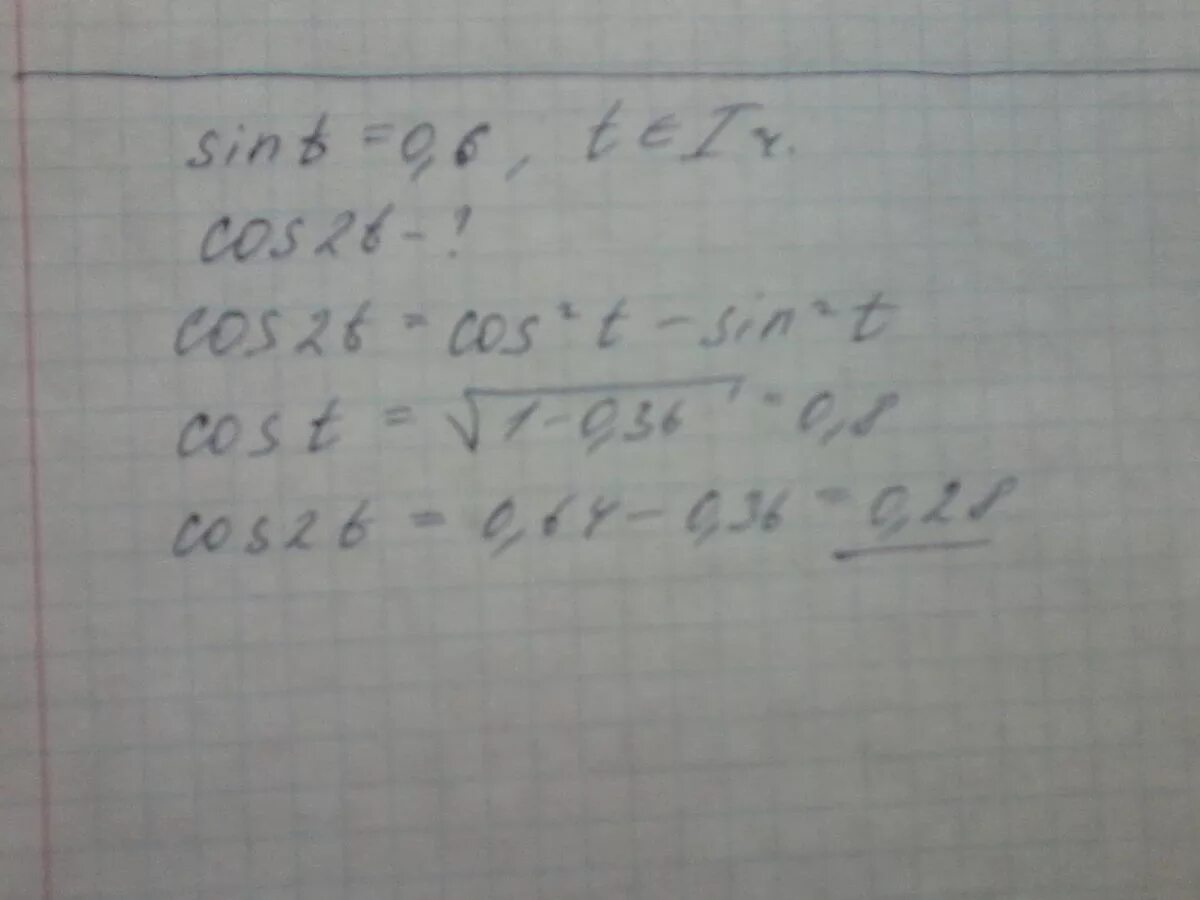 sin t = 0,6, t ∈ I ч.
cos 2t - ?
cos 2t = cos² t - sin² t
cos t = √(1-0,36) = 0,8
cos 2t = 0,64 - 0,36 = 0,28